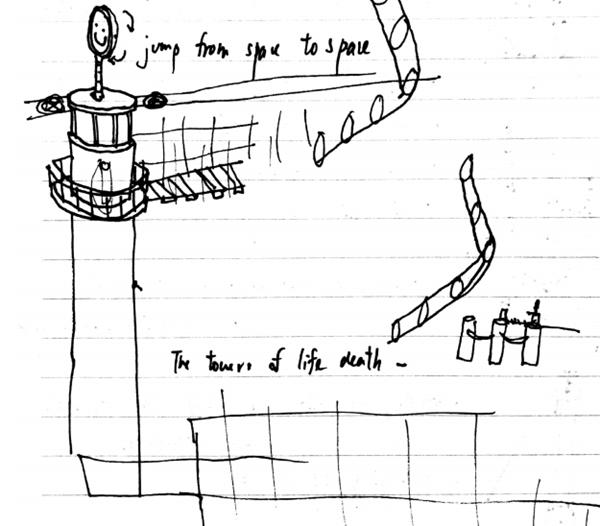 jump from space to space
The towers of life death -